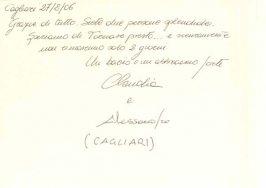 Cagliari 27/8/06
Grazie di tutto. Siete due persone splendide.
Speriamo di tornare presto... e sicuramente
non rimarremo solo 2 giorni.
Un bacio e un abbraccio forte
Claudia
e
Alessandro
(CAGLIARI)